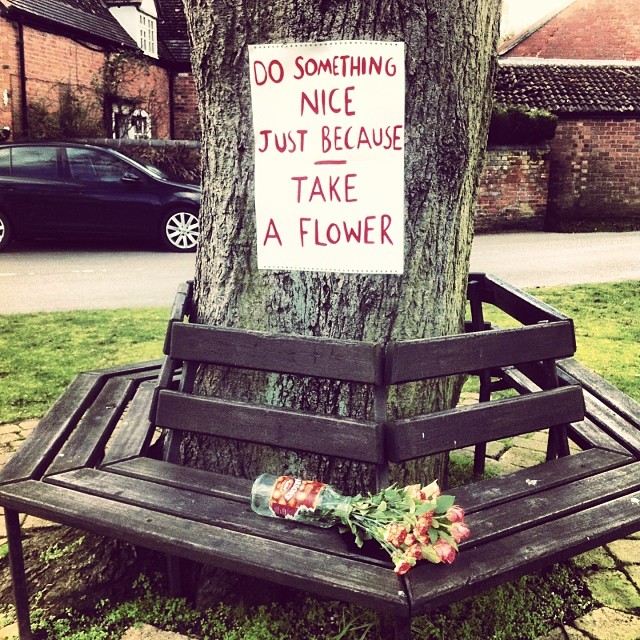 DO SOMETHING
NICE
JUST BECAUSE
TAKE
A FLOWER